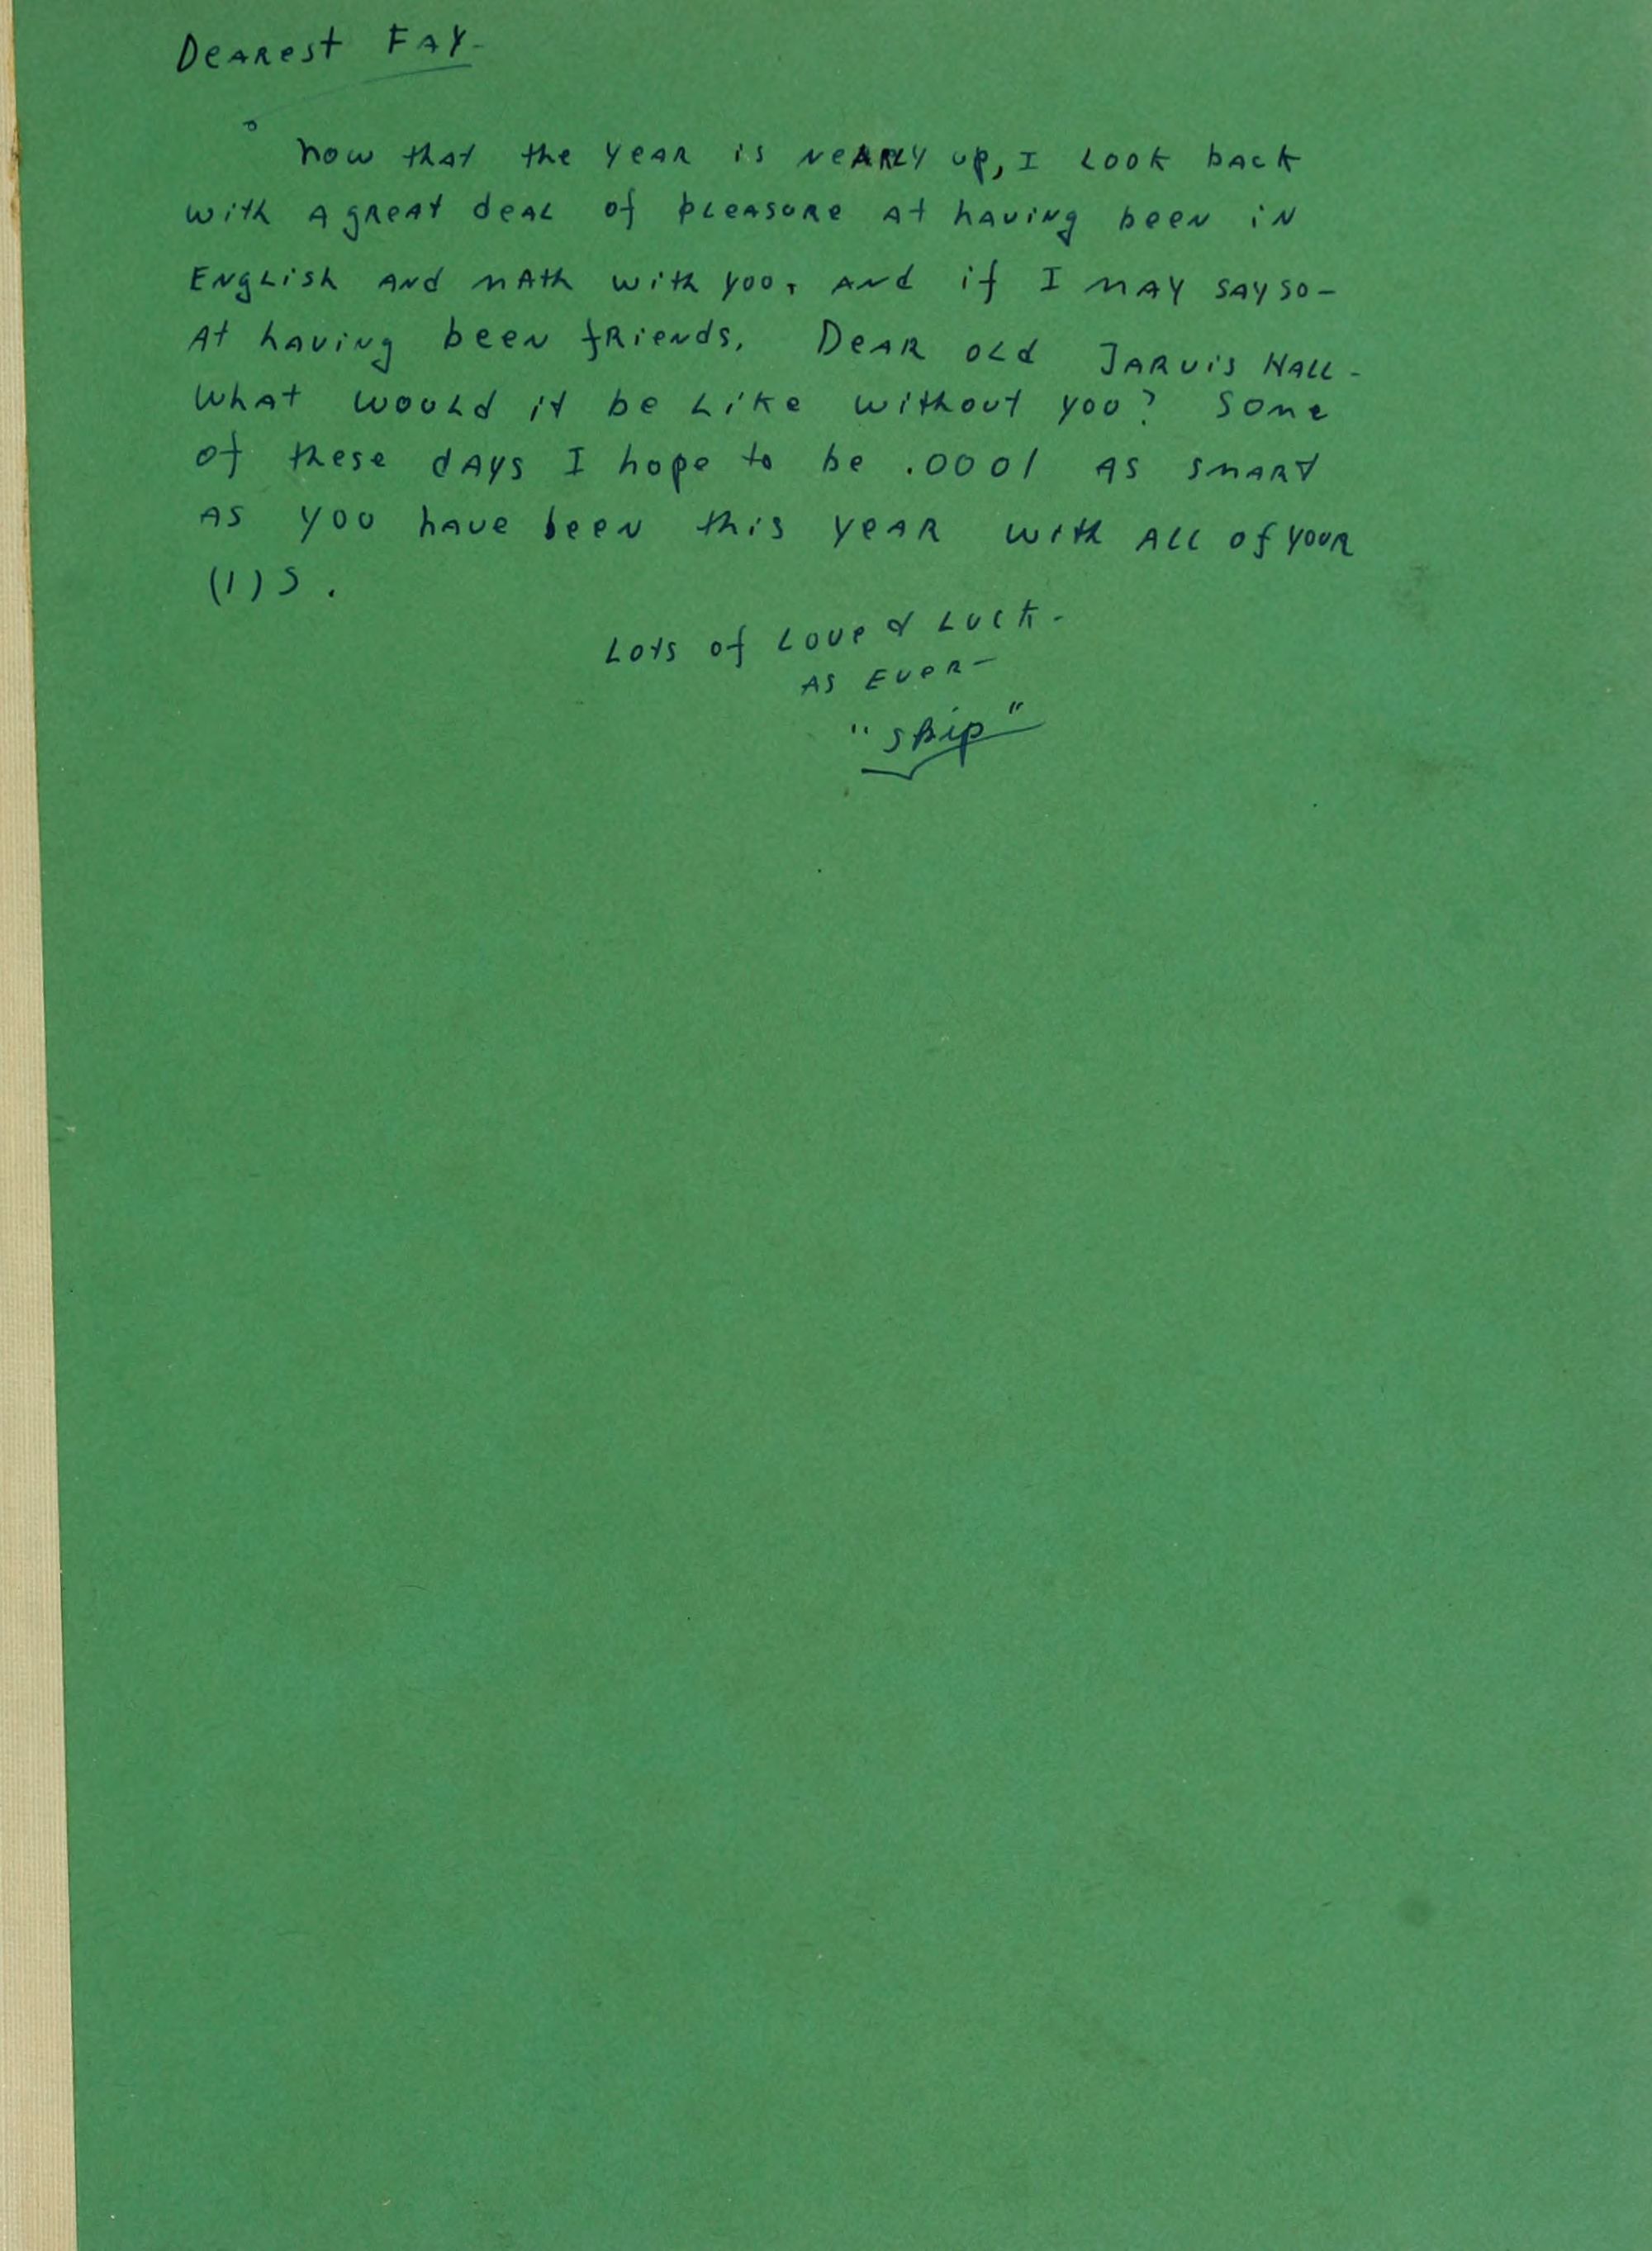 Dearest Fay-
Now that the year is nearly up, I look back
with a great deal of pleasure at having been in
English and math with you, and if I may say so-
at having been friends. Dear old Jarvis Hall-
What would it be like without you? Some
of these days I hope to be .0001 as smart
as you have been this year with all of your
(1)s.
Lots of Love & Luck-
as ever-
"Skip"